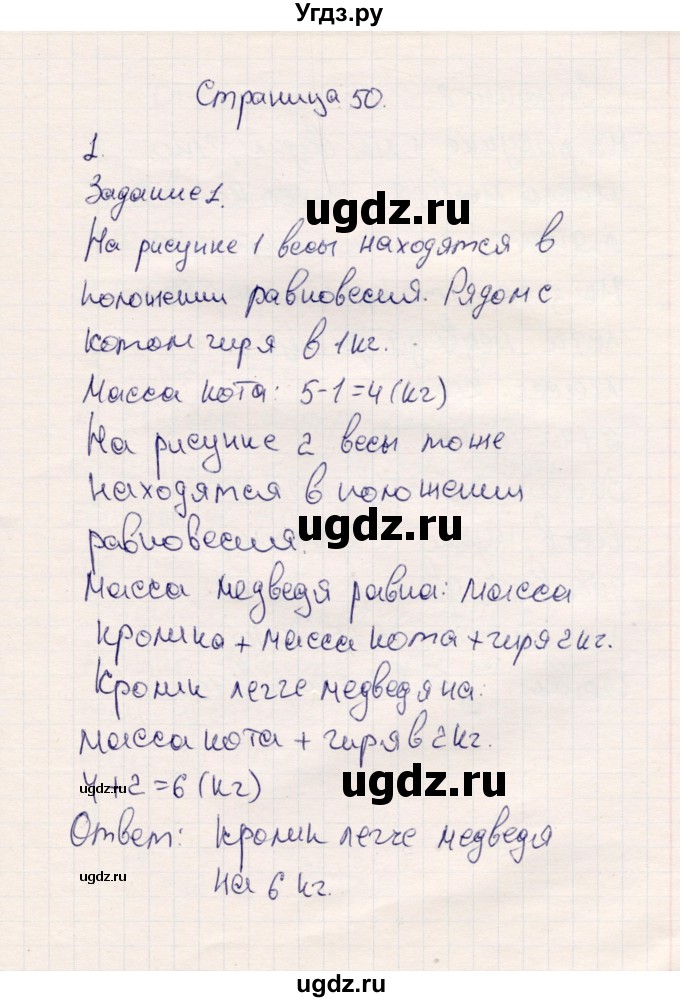 Угдз.ру
Страница 50.
1.
Задание 1.
ugdz.ru
На рисунке 1 весы находятся в
положении равновесия. Рядом с
котом гиря в 1 кг.
Масса кота: 5-1=4 (кг)
На рисунке 2 весы тоже
находятся в положении
равновесия.
ugdz.ru
Масса медведя равна: масса
кролика + масса кота + гиря 2 кг.
Кролик легче медведя на:
масса кота + гиря в 2 кг.
4+2=6 (кг)
ugdz.ru
ugdz.ru
Ответ: кролик легче медведя
на 6 кг.
ugdz.ru
ugdz.ru